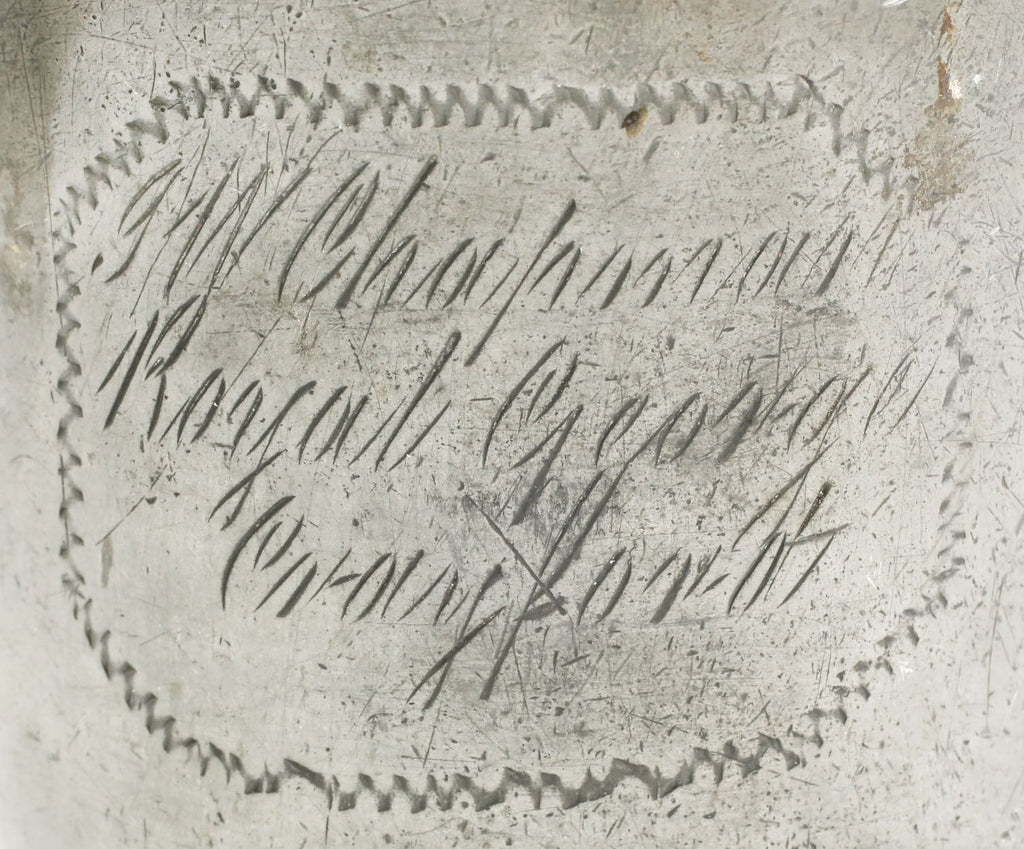 J W Chapman
Royal George
Crayford